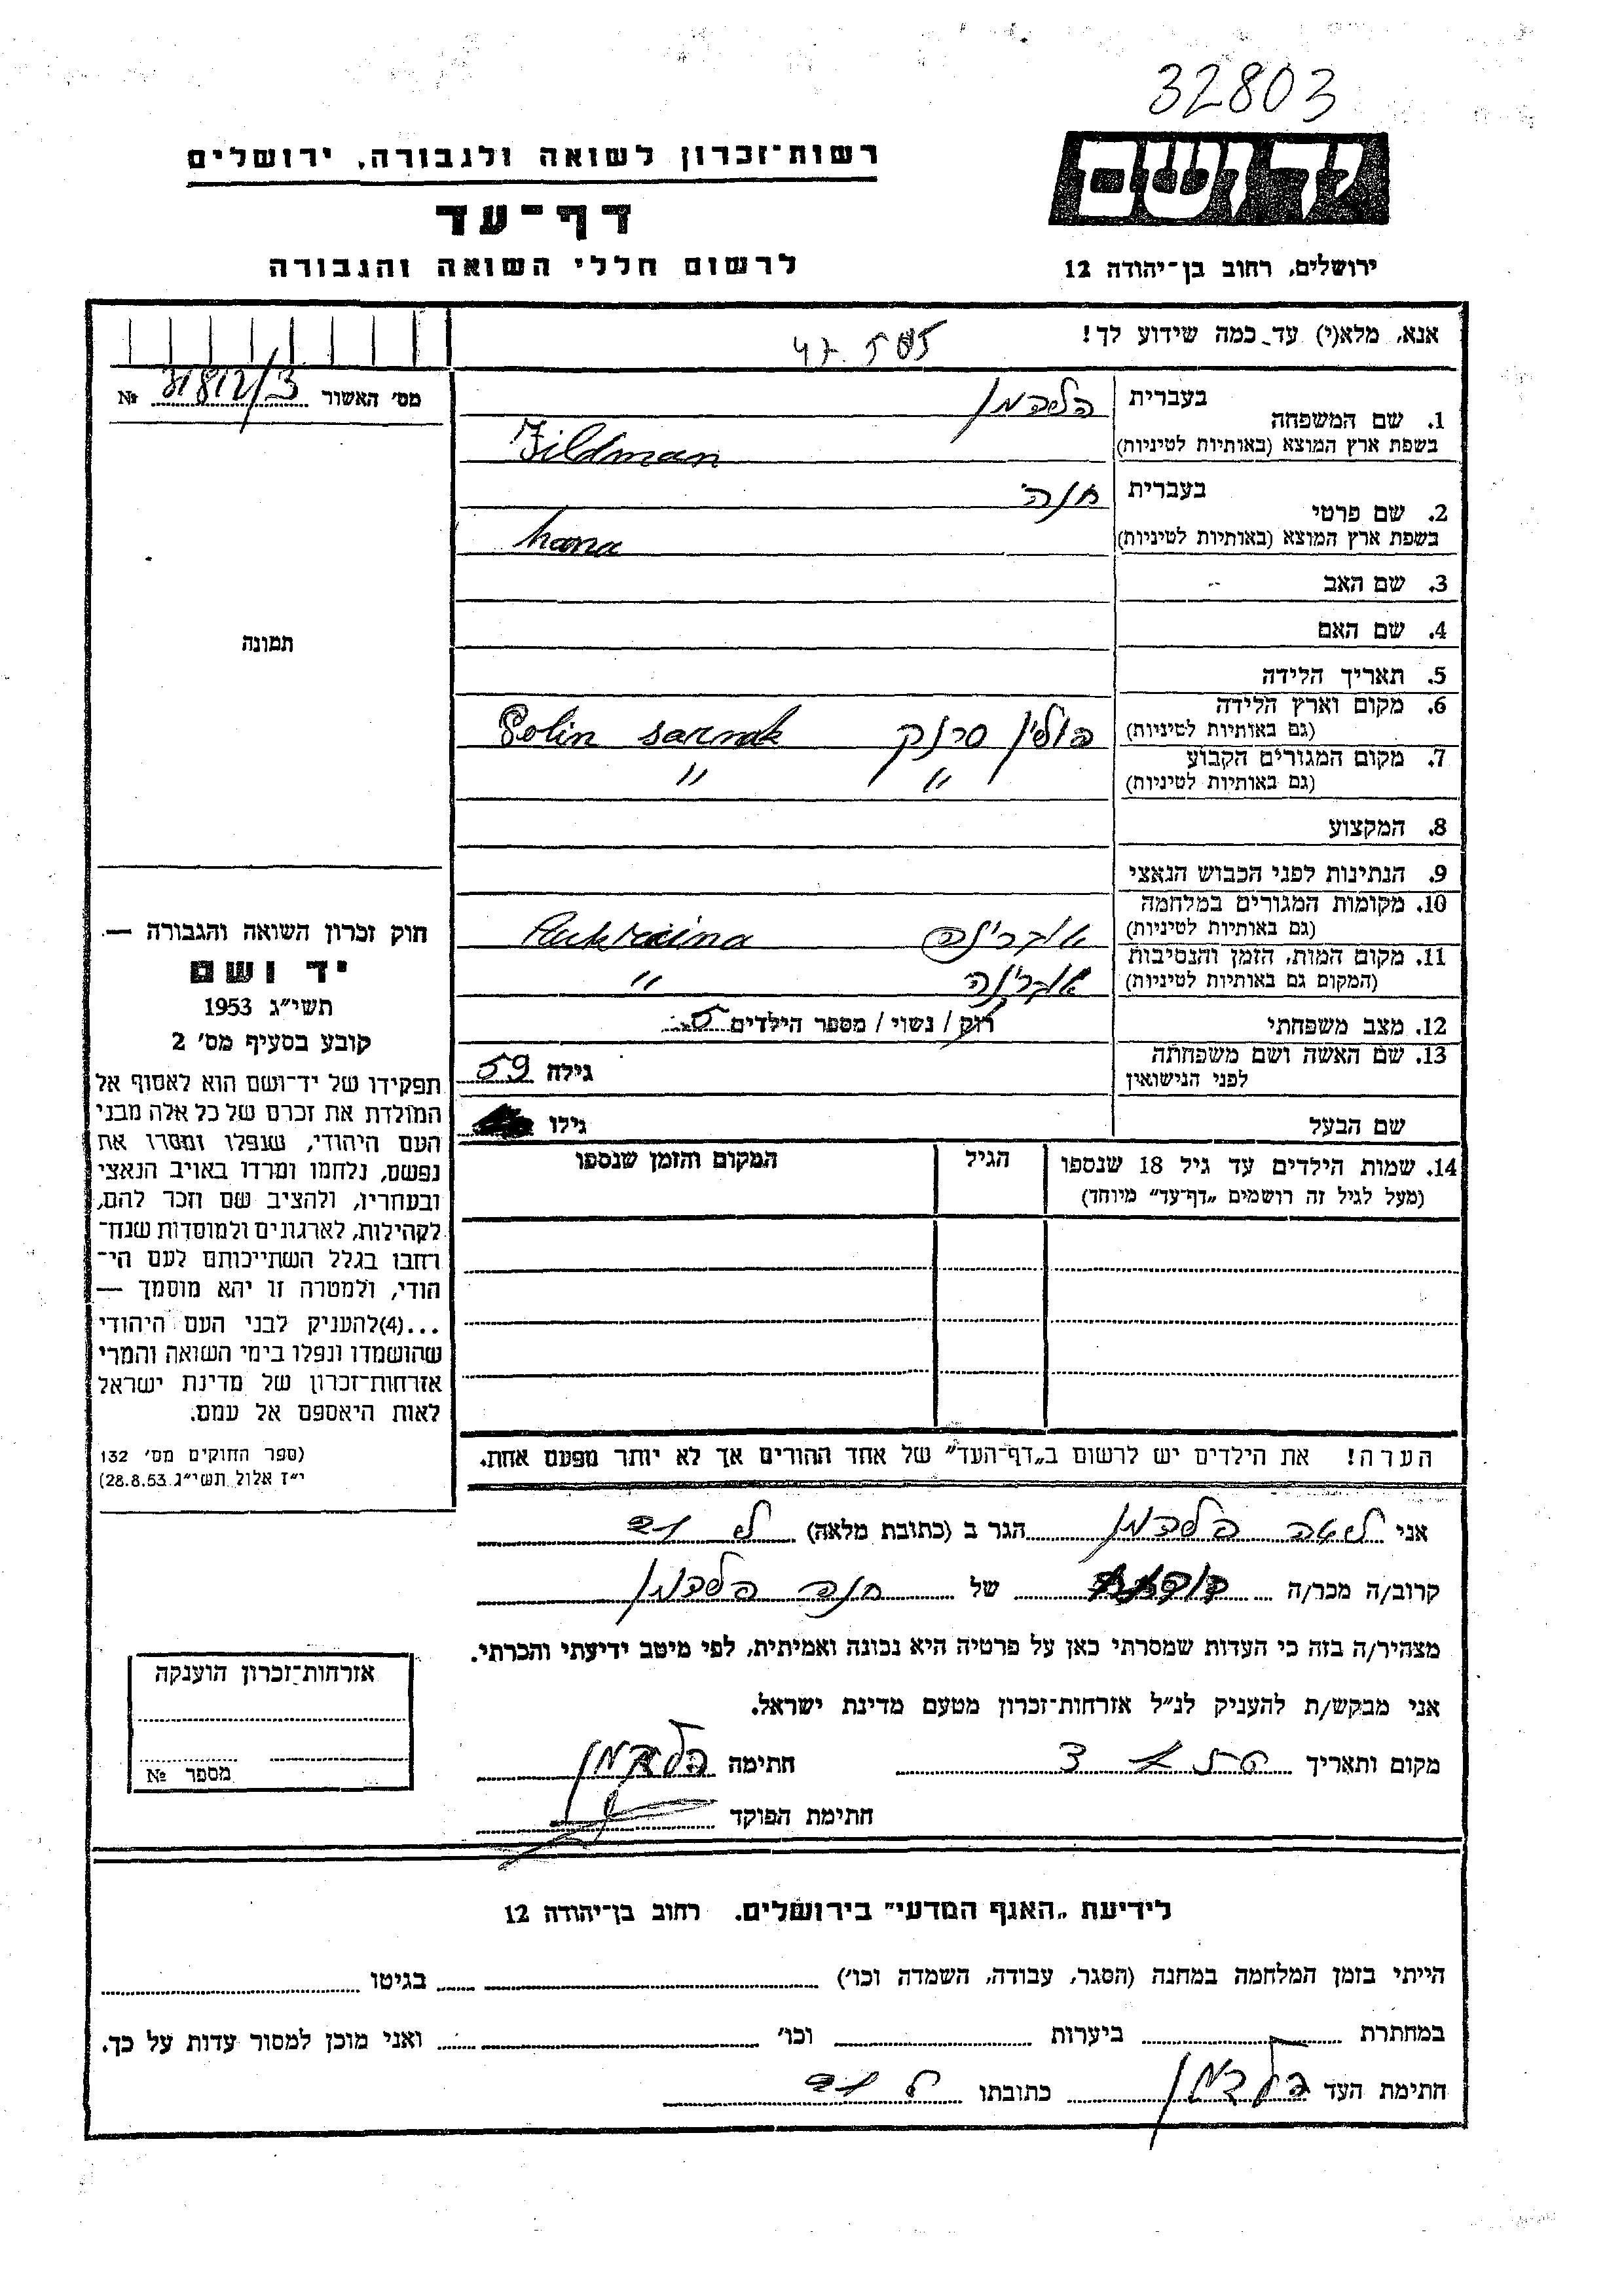 32803
יד ושם
רשות־זכרון לשואה ולגבורה, ירושלים
דף־עד
לרשום חללי השואה והגבורה
ירושלים, רחוב בן־יהודה 12
אנא, מלא(י) עד כמה שידוע לך!
מס׳ האשור 31812/3 №
1. שם המשפחה
בעברית
בשפת ארץ המוצא (באותיות לטיניות) Fildman
2. שם פרטי
בעברית חנה
בשפת ארץ המוצא (באותיות לטיניות) hana
3. שם האב
4. שם האם
5. תאריך הלידה
6. מקום וארץ הלידה
(גם באותיות לטיניות) פולין סרנק Polin sarnak
7. מקום המגורים הקבוע
(גם באותיות לטיניות) " "
8. המקצוע
9. הנתינות לפני הכבוש הנאצי
10. מקומות המגורים במלחמה
(גם באותיות לטיניות) אוקרינה
11. מקום המות, הזמן והנסיבות
(המקום גם באותיות לטיניות) אוקרינה "
12. מצב משפחתי רוק / נשוי / מספר הילדים 5
13. שם האשה ושם משפחתה
לפני הנישואין גילה 59
שם הבעל גילו
14. שמות הילדים עד גיל 18 שנספו
(מעל לגיל זה רושמים „דף־עד" מיוחד)
הגיל
המקום והזמן שנספו
תמונה
חוק זכרון השואה והגבורה —
יד ושם
תשי״ג 1953
קובע בסעיף מס׳ 2
תפקידו של יד־ושם הוא לאסוף אל
המולדת את זכרם של כל אלה מבני
העם היהודי, שנפלו ומסרו את
נפשם, נלחמו ומרדו באויב הנאצי
ובעוזריו, ולהציב שם וזכר להם,
לקהילות, לארגונים ולמוסדות שנח־
רחבו בגלל השתייכותם לעם הי־
הודי, ולמטרה זו יהא מוסמך —
...(4)להעניק לבני העם היהודי
שהושמדו ונפלו בימי השואה והמרי
אזרחות־זכרון של מדינת ישראל
לאות היאספם אל עמם.
(ספר החוקים מס׳ 132
י״ז אלול תשי״ג 28.8.53)
הערה! את הילדים יש לרשום ב„דף־העד" של אחד ההורים אך לא יותר מפעם אחת.
אני הגר ב (כתובת מלאה)
קרוב/ה מכר/ה של חנה
מצהיר/ה בזה כי העדות שמסרתי כאן על פרטיה היא נכונה ואמיתית, לפי מיטב ידיעתי והכרתי.
אני מבקש/ת להעניק לנ״ל אזרחות־זכרון מטעם מדינת ישראל.
מקום ותאריך חתימה
חתימת הפוקד
אזרחות־זכרון הוענקה
מספר №
לידיעת „האגף המדעי" בירושלים. רחוב בן־יהודה 12
הייתי בזמן המלחמה במחנה (הסגר, עבודה, השמדה וכו׳) בגיטו
במחתרת ביערות וכו׳ ואני מוכן למסור עדות על כך.
חתימת העד כתובתו